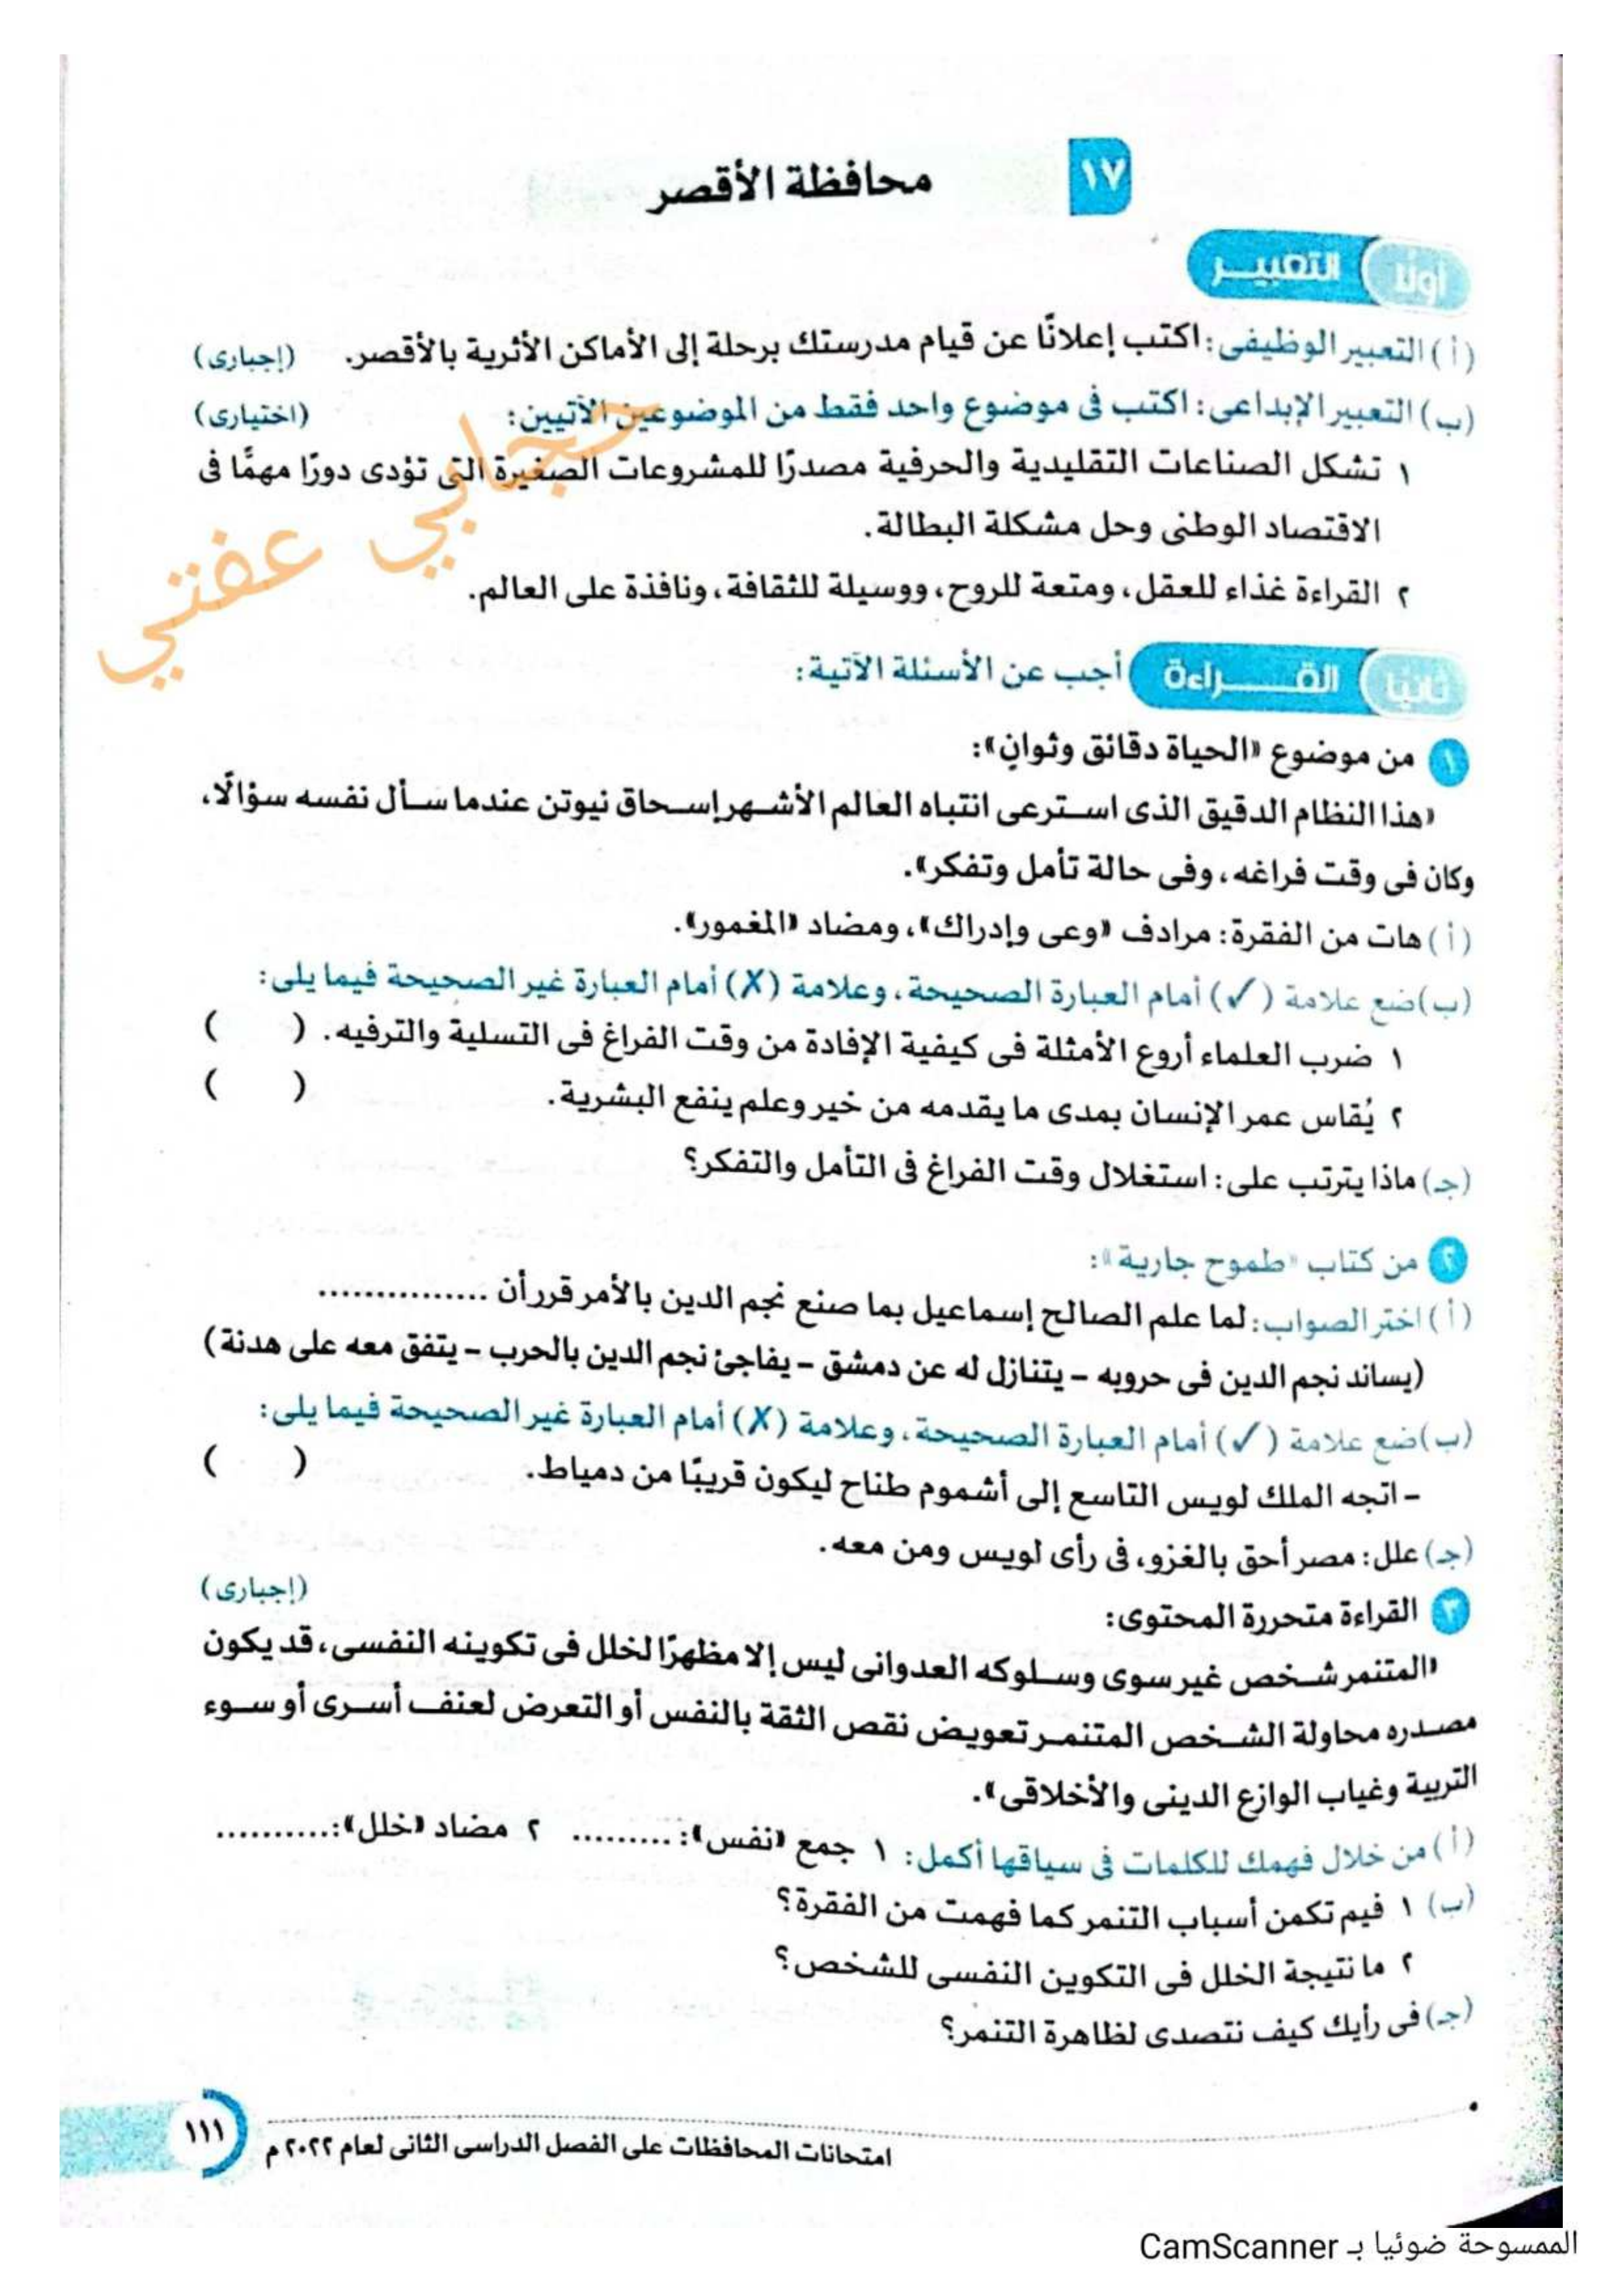 ١٧
محافظة الأقصر
أولًا التعبير
(أ) التعبير الوظيفى: اكتب إعلانًا عن قيام مدرستك برحلة إلى الأماكن الأثرية بالأقصر. (إجبارى)
(ب) التعبير الإبداعى: اكتب فى موضوع واحد فقط من الموضوعين الآتيين: (اختيارى)
١ تشكل الصناعات التقليدية والحرفية مصدرًا للمشروعات الصغيرة التى تؤدى دورًا مهمًّا فى
الاقتصاد الوطنى وحل مشكلة البطالة.
٢ القراءة غذاء للعقل، ومتعة للروح، ووسيلة للثقافة، ونافذة على العالم.
حجابي عفتي
ثانيا القـــراءة أجب عن الأسئلة الآتية:
١ من موضوع «الحياة دقائق وثوانٍ»:
«هذا النظام الدقيق الذى استرعى انتباه العالم الأشهر إسحاق نيوتن عندما سأل نفسه سؤالًا،
وكان فى وقت فراغه، وفى حالة تأمل وتفكر».
(أ) هات من الفقرة: مرادف «وعى وإدراك»، ومضاد «المغمور».
(ب) ضع علامة (✓) أمام العبارة الصحيحة، وعلامة (X) أمام العبارة غير الصحيحة فيما يلى:
١ ضرب العلماء أروع الأمثلة فى كيفية الإفادة من وقت الفراغ فى التسلية والترفيه. ( )
٢ يُقاس عمر الإنسان بمدى ما يقدمه من خير وعلم ينفع البشرية. ( )
(جـ) ماذا يترتب على: استغلال وقت الفراغ فى التأمل والتفكر؟
٢ من كتاب «طموح جارية»:
(أ) اختر الصواب: لما علم الصالح إسماعيل بما صنع نجم الدين بالأمر قرر أن ...............
(يساند نجم الدين فى حروبه – يتنازل له عن دمشق – يفاجئ نجم الدين بالحرب – يتفق معه على هدنة)
(ب) ضع علامة (✓) أمام العبارة الصحيحة، وعلامة (X) أمام العبارة غير الصحيحة فيما يلى:
– اتجه الملك لويس التاسع إلى أشموم طناح ليكون قريبًا من دمياط. ( )
(جـ) علل: مصر أحق بالغزو، فى رأى لويس ومن معه.
٣ القراءة متحررة المحتوى: (إجبارى)
«المتنمر شخص غير سوى وسلوكه العدوانى ليس إلا مظهرًا لخلل فى تكوينه النفسى، قد يكون
مصدره محاولة الشخص المتنمر تعويض نقص الثقة بالنفس أو التعرض لعنف أسرى أو سوء
التربية وغياب الوازع الدينى والأخلاقى».
(أ) من خلال فهمك للكلمات فى سياقها أكمل: ١ جمع «نفس»: ......... ٢ مضاد «خلل»: ..........
(ب) ١ فيم تكمن أسباب التنمر كما فهمت من الفقرة؟
٢ ما نتيجة الخلل فى التكوين النفسى للشخص؟
(جـ) فى رأيك كيف نتصدى لظاهرة التنمر؟
امتحانات المحافظات على الفصل الدراسى الثانى لعام ٢٠٢٢ م
١١١
الممسوحة ضوئيا بـ CamScanner